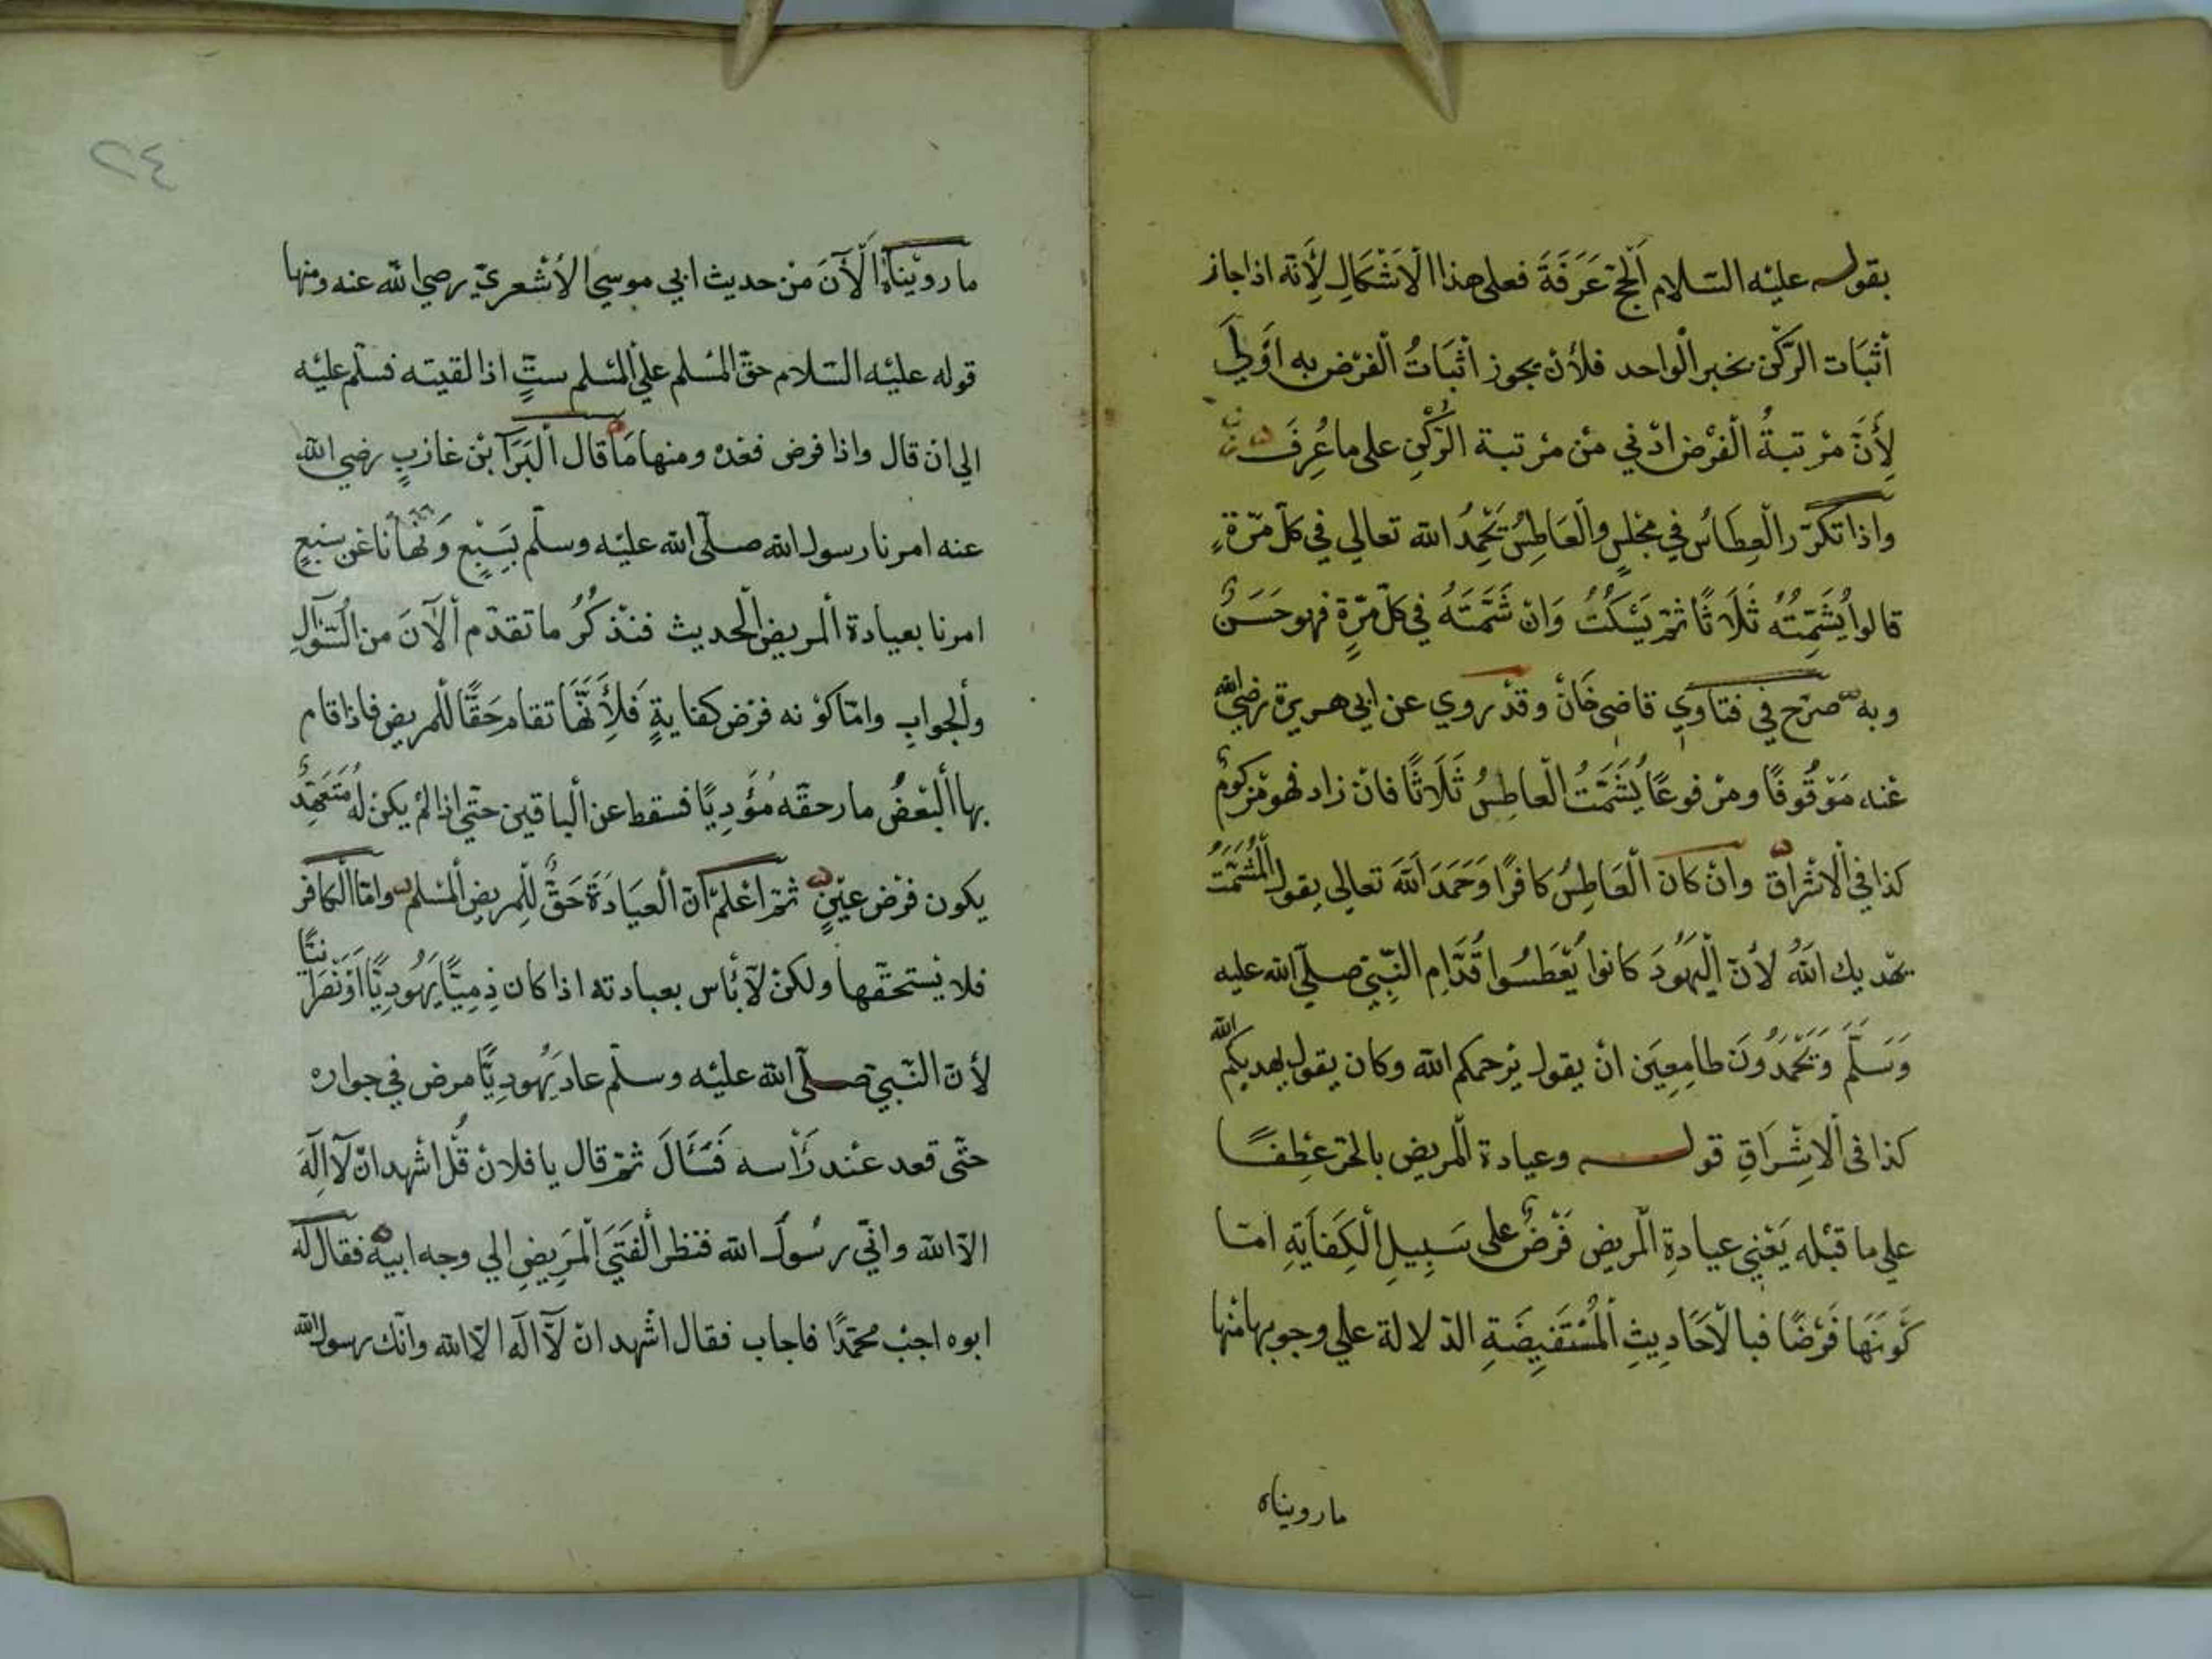 بقوله عليْه السّلام اَلحجّ عَرَفَةَ فعلى هذا الْاَشْكَالِ لِأَنّه اذا جاز
أثبَات الرّكْن بخبر الْواحد فلأنْ يجوز أثبَاتُ الْفرْض به اَوْلَي
لِأَنَّ مرْتبةُ الْفرْض ادْني منْ مرْتبة الرّكْنِ على ما عُرِفَ
واذا تكرّر الْعِطَاسُ في مجْلسٍ والْعَاطِسُ يَحْمِدُ الله تعالي في كلّ مرّةٍ
قالوا يُشَمِّتُهُ ثَلَاثًا ثمّ يَسْكُتُ وَانْ شَمَّتَهُ في كلّ مرّةٍ فهو حَسَنٌ
وبه صرّح في فتاوي قاضى خَانْ وقدْ روي عن ابي هريرة رضي الله
عنْه مَوْقُوفًا ومرْفوعًا يُشَمَّتُ الْعاطِسُ ثَلَاثًا فانْ زاد فهو مزكومٌ
كذا في الْاشْراق وانْ كان الْعَاطِسُ كافرًا وَحَمَدَ اللَّهَ تعالي يقول الْمُشَمِّتُ
يهْديك اللهُ لأنّ الْيَهُودَ كانوا يُعْطَسُوا قُدَّامِ النّبِيّ صلّى الله عليه
وَسَلَّمَ وَيَحْمَدُونَ طامِعِيَن انْ يقول يرْحمكم الله وكان يقول يهديكم الله
كذا في الْاِشْرَاقِ قوله وعيادة الْمريض بالجرّ عطْفًا
علي ما قبْله يَعْنِي عيادةِ الْمريض فَرْضٌ على سَبِيلِ الْكِفَايَةِ امّا
كَوْنَهَا فَرْضًا فبالْاَحَادِيثِ الْمُسْتَفِيضَةِ الدّلالة علي وجوبها منْها
ما رويناه
٢٤
ما رويْناه الْآنَ منْ حديث ابي موسي الاَشْعريّ رضي الله عنه ومنها
قوله عليْه السّلام حقّ الْمسْلم علي الْمسْلم ستٌّ اذا لقيته فسلّم عليْه
الي انْ قال واذا فرض فعُدْه ومنها مَا قال الْبَرَآ بْن غازبٍ رضي الله
عنه امرنا رسول الله صلّى الله عليْه وسلّم بِسَبْعٍ وَنَهَانَا عَنْ سَبْعٍ
امرنا بعيادة الْمريض الْحديث فنذْكُرُ ما تقدّم الْآنَ من السُّؤَالِ
والْجوابِ وامّا كوْنه فرْض كفايةٍ فَلِأَنَّهَا تقام حَقًّا للْمريض فاذا قام
بها الْبَعْضُ صار حقّه مُؤَدِيًا فسقط عن الْباقين حتّي اذا لمْ يكن لهُ مُتَعَهِّدٌ
يكون فرْض عيْنٍ ثمّ اعْلمْ انّ الْعيَادَةَ حَقٌّ للْمريض الْمسْلم وامّا الْكافر
فلا يسْتحقّها ولكنْ لَا بأْس بعيادته اذا كان ذِمِيًّا يَهُودِيًّا أوْ نَصْرَانيًّا
لأنّ النّبيّ صلّى الله عليْه وسلّم عاد يَهُودِيًّا مرض في جواره
حتّي قعد عنْد رَأْسه فَسَأَلَ ثمّ قال يا فلانْ قُلْ اشْهد انْ لَا اِلَهَ
الّا الله وانّي رسُول الله فنظر الْفَتَي الْمَرِيضِ الي وجه ابيه فقال له
ابوه اجبْ محمّدًا فاجاب فقال اشْهد انْ لَا الَه الّا الله وانّك رسول الله